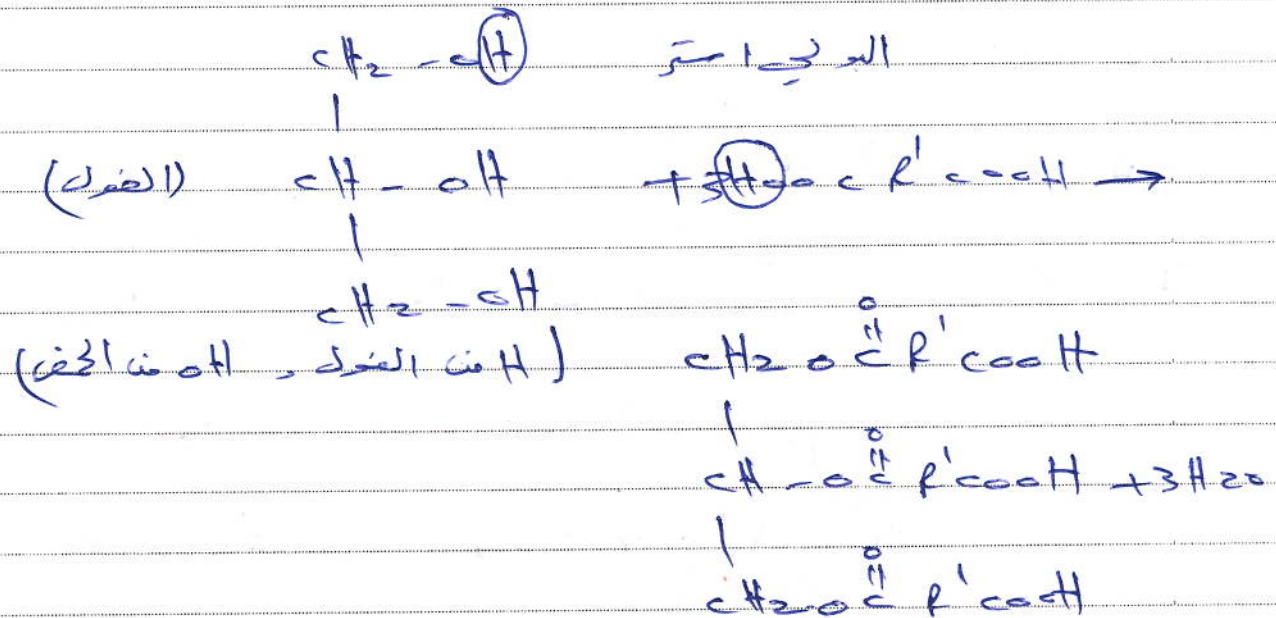 CH2 - OH البولي استر
|
(الغول) CH - OH + 3HOOC R' COOH →
|
CH2 - OH
(H من الغول و OH من الحمض) CH2 O C R' COOH
O
||
|
O
||
CH - O C R' COOH + 3H2O
|
O
||
CH2 O C R' COOH